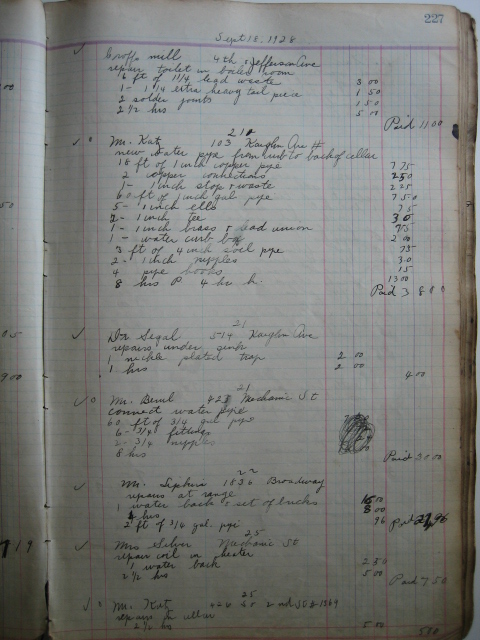 227
Sept 18, 1928
Croffs mill 4th & Jefferson Ave
repairs toilet in boiler room
6 ft of 1 1/4 lead waste 3 00
1 - 1 1/4 extra heavy tail piece 1 50
2 solder joints 1 50
2 1/2 hrs 5 00
Paid 11 00
21
Mr. Katz 103 Kaighn Ave
new water pipe from curb to back of cellar
18 ft of 1 inch copper pipe 7 75
2 copper connections 2 50
1 - 1 inch stop & waste 2 25
60 ft of 1 inch gal pipe 7 50
5 - 1 inch ells 75
2 - 1 inch tee 30
1 - 1 inch brass & lead union 75
1 - water curb box 2 00
3 ft of 4 inch soil pipe 75
2 - 1 inch nipples 30
4 pipe hooks 15
8 hrs P 4 hr h. 13 00
Paid 38 00
21
Dr Segal 514 Kaighn Ave
repairs under sink
1 nickle plated trap 2 00
1 hrs 2 00
4 00
21
Mr. 421 Mechanic St
connect water pipe
60 ft of 3/4 gal pipe
6 - 3/4 fittings
2 - 3/4 nipples
8 hrs
Paid 30 00
22
Mr. 1836 Broadway
repairs at range
1 water back & set of bricks
4 hrs 8 00
2 ft of 3/4 gal. pipe 96
25
Mrs Silver Mechanic St
repair coil in heater
1 water back 2 50
2 1/2 hrs 5 00
Paid 7 50
25
Mr. Katz
repairs in cellar
2 1/2 hrs 5 00